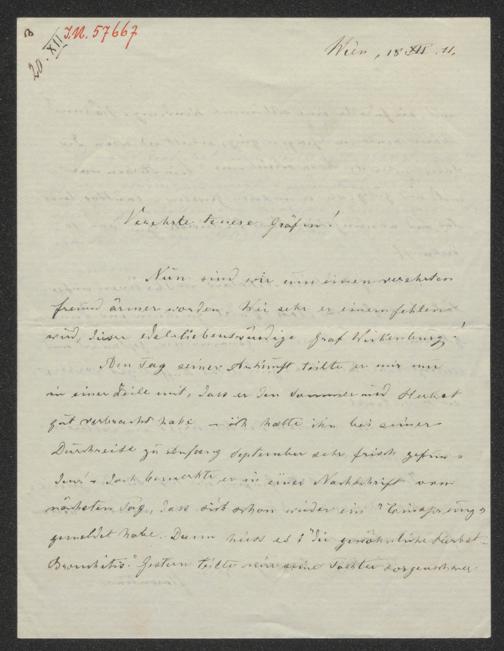 B
20. XII
I.N. 57667
Wien, 18 XII. 11.
Verehrte teuere Gräfin!
Nun sind wir um einen verehrten
Freund ärmer worden. Wie sehr er einem fehlen
wird, dieser edle liebenswürdige Graf Wickenburg!
Den Tag seiner Ankunft teilte er mir nur
in einer Zeile mit, dass er den Sommer und Herbst
gut verbracht habe – ich hatte ihn bei seiner
Durchreise zu Anfang September sehr frisch gefun-
den! – doch bemerkte er in einer Nachschrift vom
nächsten Tag, dass sich schon wieder ein "
gemeldet habe. Dann hiess es: "die gewöhnliche Herbst-
Bronchitis." Gestern teilte mir seine Tochter sorgenschwer